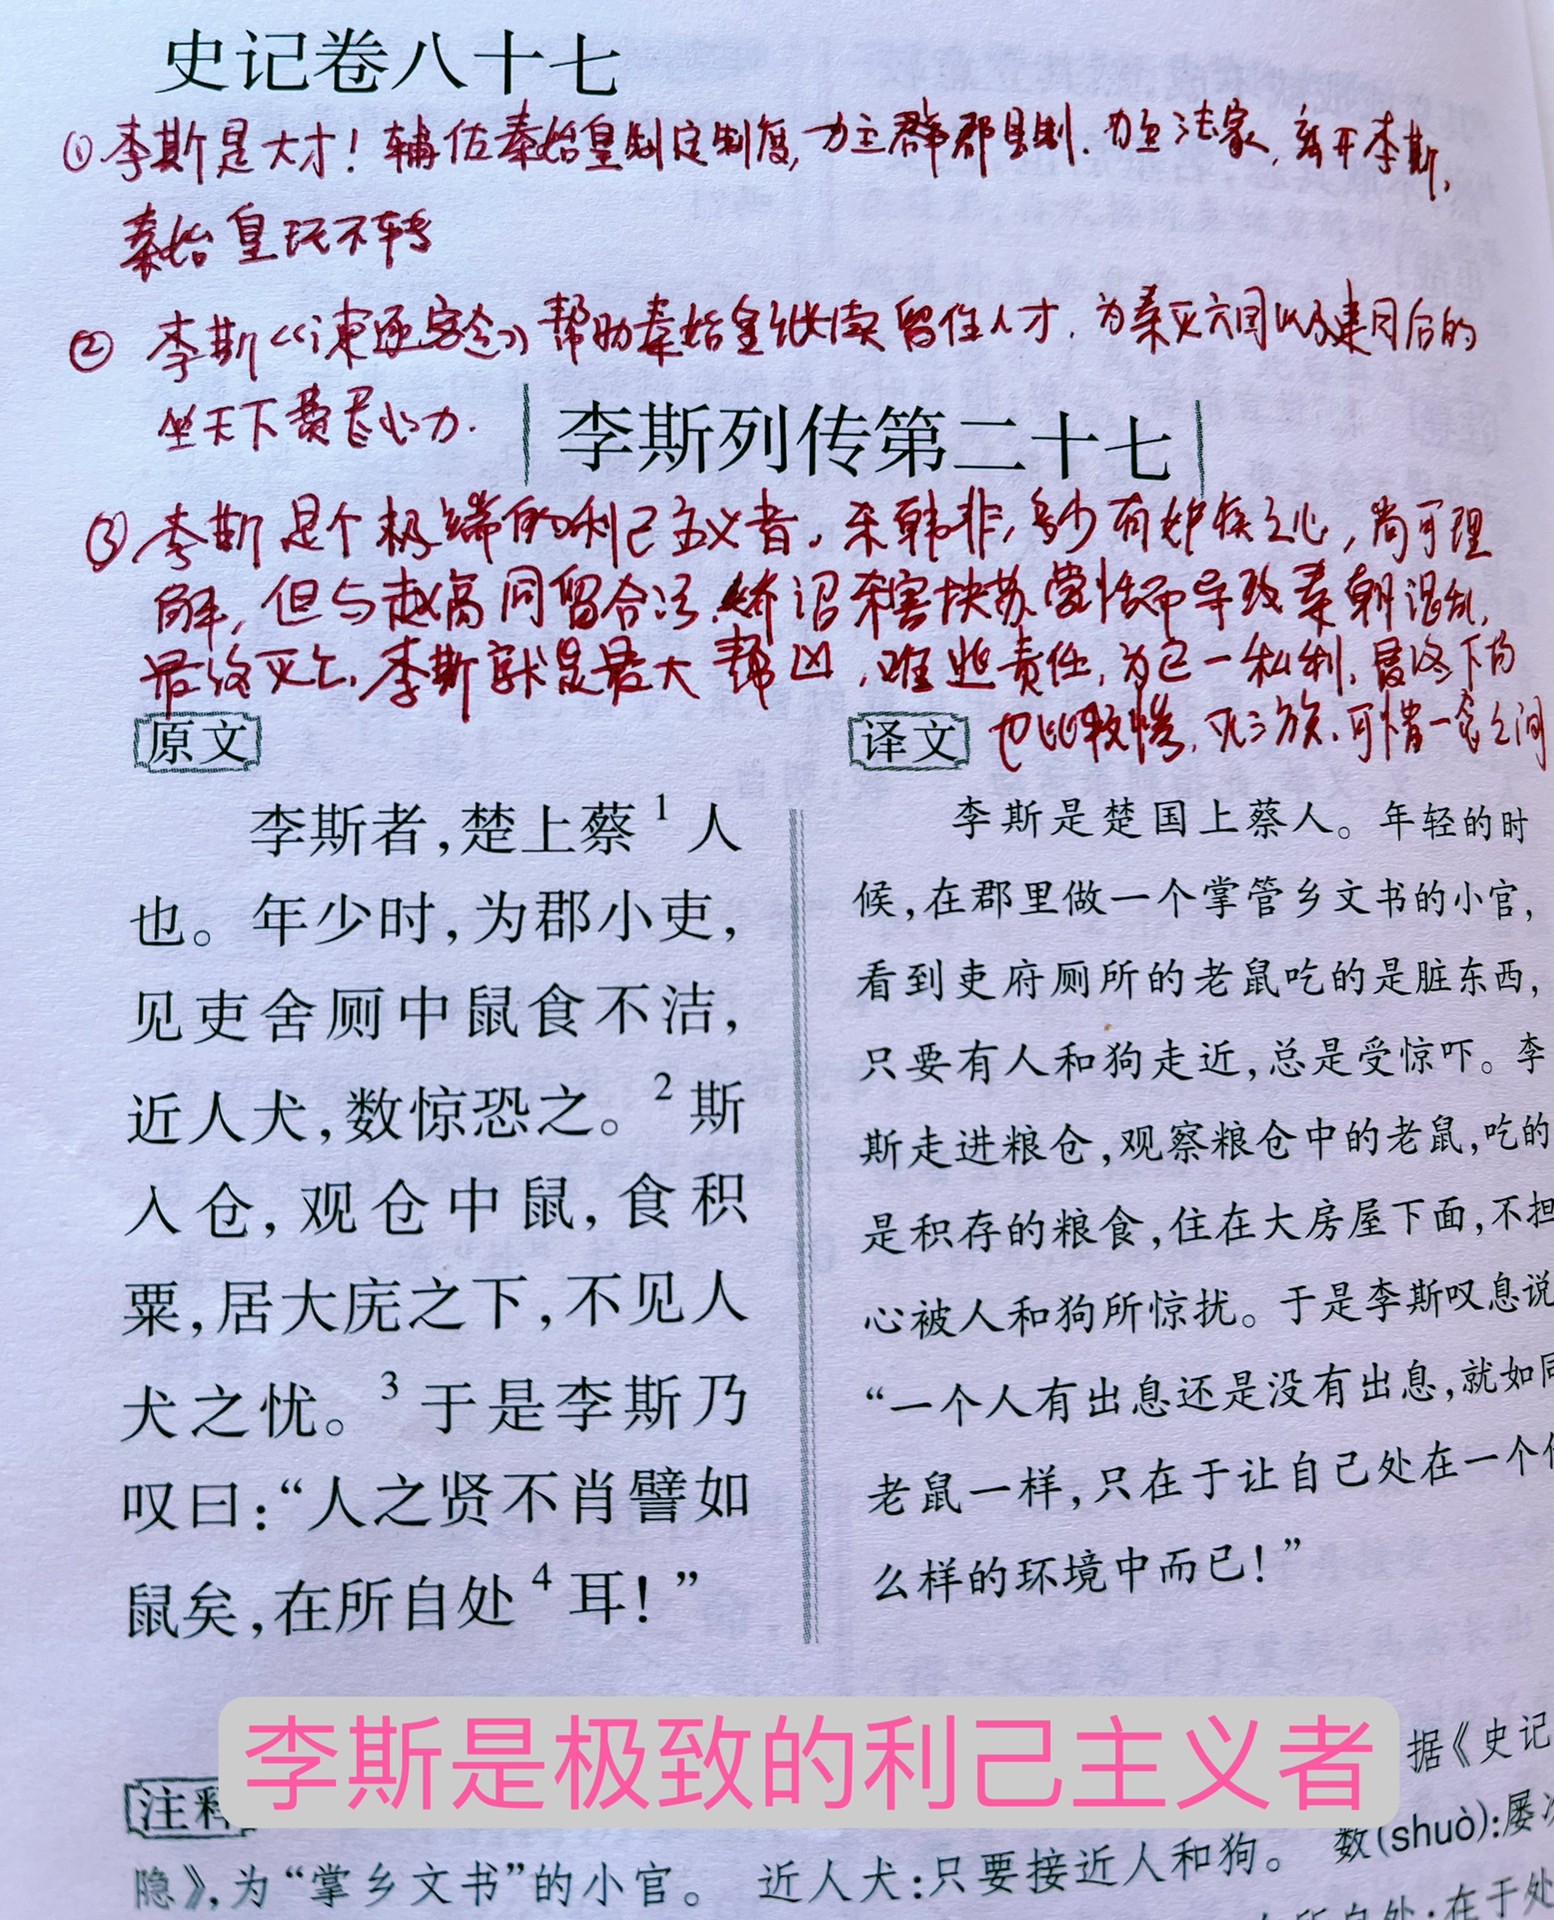 史记卷八十七
①李斯是大才！辅佐秦始皇制定制度，力主郡县制．力主法家．离开李斯，
秦始皇玩不转
② 李斯《谏逐客令》帮助秦始皇继续留住人才．为秦灭六国以及建国后的
坐天下费尽心力．
李斯列传第二十七
③李斯是个极端的利己主义者．杀韩非，多少有妒疾之心，尚可理
解，但与赵高同留合污．矫诏杀害扶苏、蒙恬而导致秦朝混乱，
最终灭亡．李斯就是最大帮凶，难逃责任．为己一私利．最终下场
原文
译文
也比较惨．灭三族．可惜一念之间
李斯者，楚上蔡1人
也。年少时，为郡小吏，
见吏舍厕中鼠食不洁，
近人犬，数惊恐之。2斯
入仓，观仓中鼠，食积
粟，居大庑之下，不见人
犬之忧。3于是李斯乃
叹曰：“人之贤不肖譬如
鼠矣，在所自处4耳！”
李斯是楚国上蔡人。年轻的时
候，在郡里做一个掌管乡文书的小官，
看到吏府厕所的老鼠吃的是脏东西，
只要有人和狗走近，总是受惊吓。李
斯走进粮仓，观察粮仓中的老鼠，吃的
是积存的粮食，住在大房屋下面，不担
心被人和狗所惊扰。于是李斯叹息说
“一个人有出息还是没有出息，就如同
老鼠一样，只在于让自己处在一个什
么样的环境中而已！”
李斯是极致的利己主义者
注释
据《史记
隐》，为“掌乡文书”的小官。 近人犬：只要接近人和狗。 数(shuò)：屡次
所自处：在于处